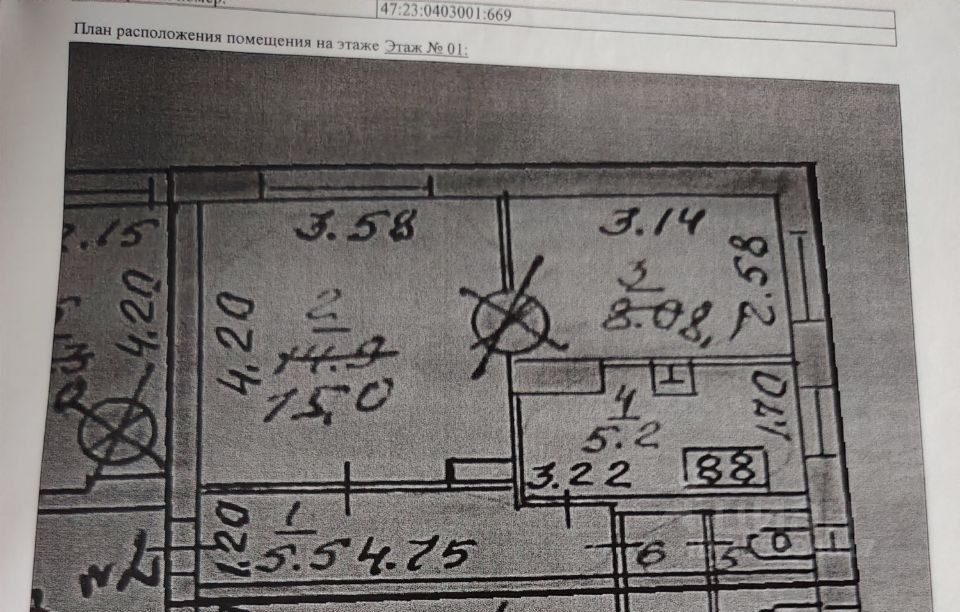 47:23:0403001:669
План расположения помещения на этаже Этаж № 01:
3.58
3.14
4.20
2.58
4.20
2
3
14.9
15,0
8.08,
1.70
4
5.2
3.22
1.20
1
5.5
4.75
6
5